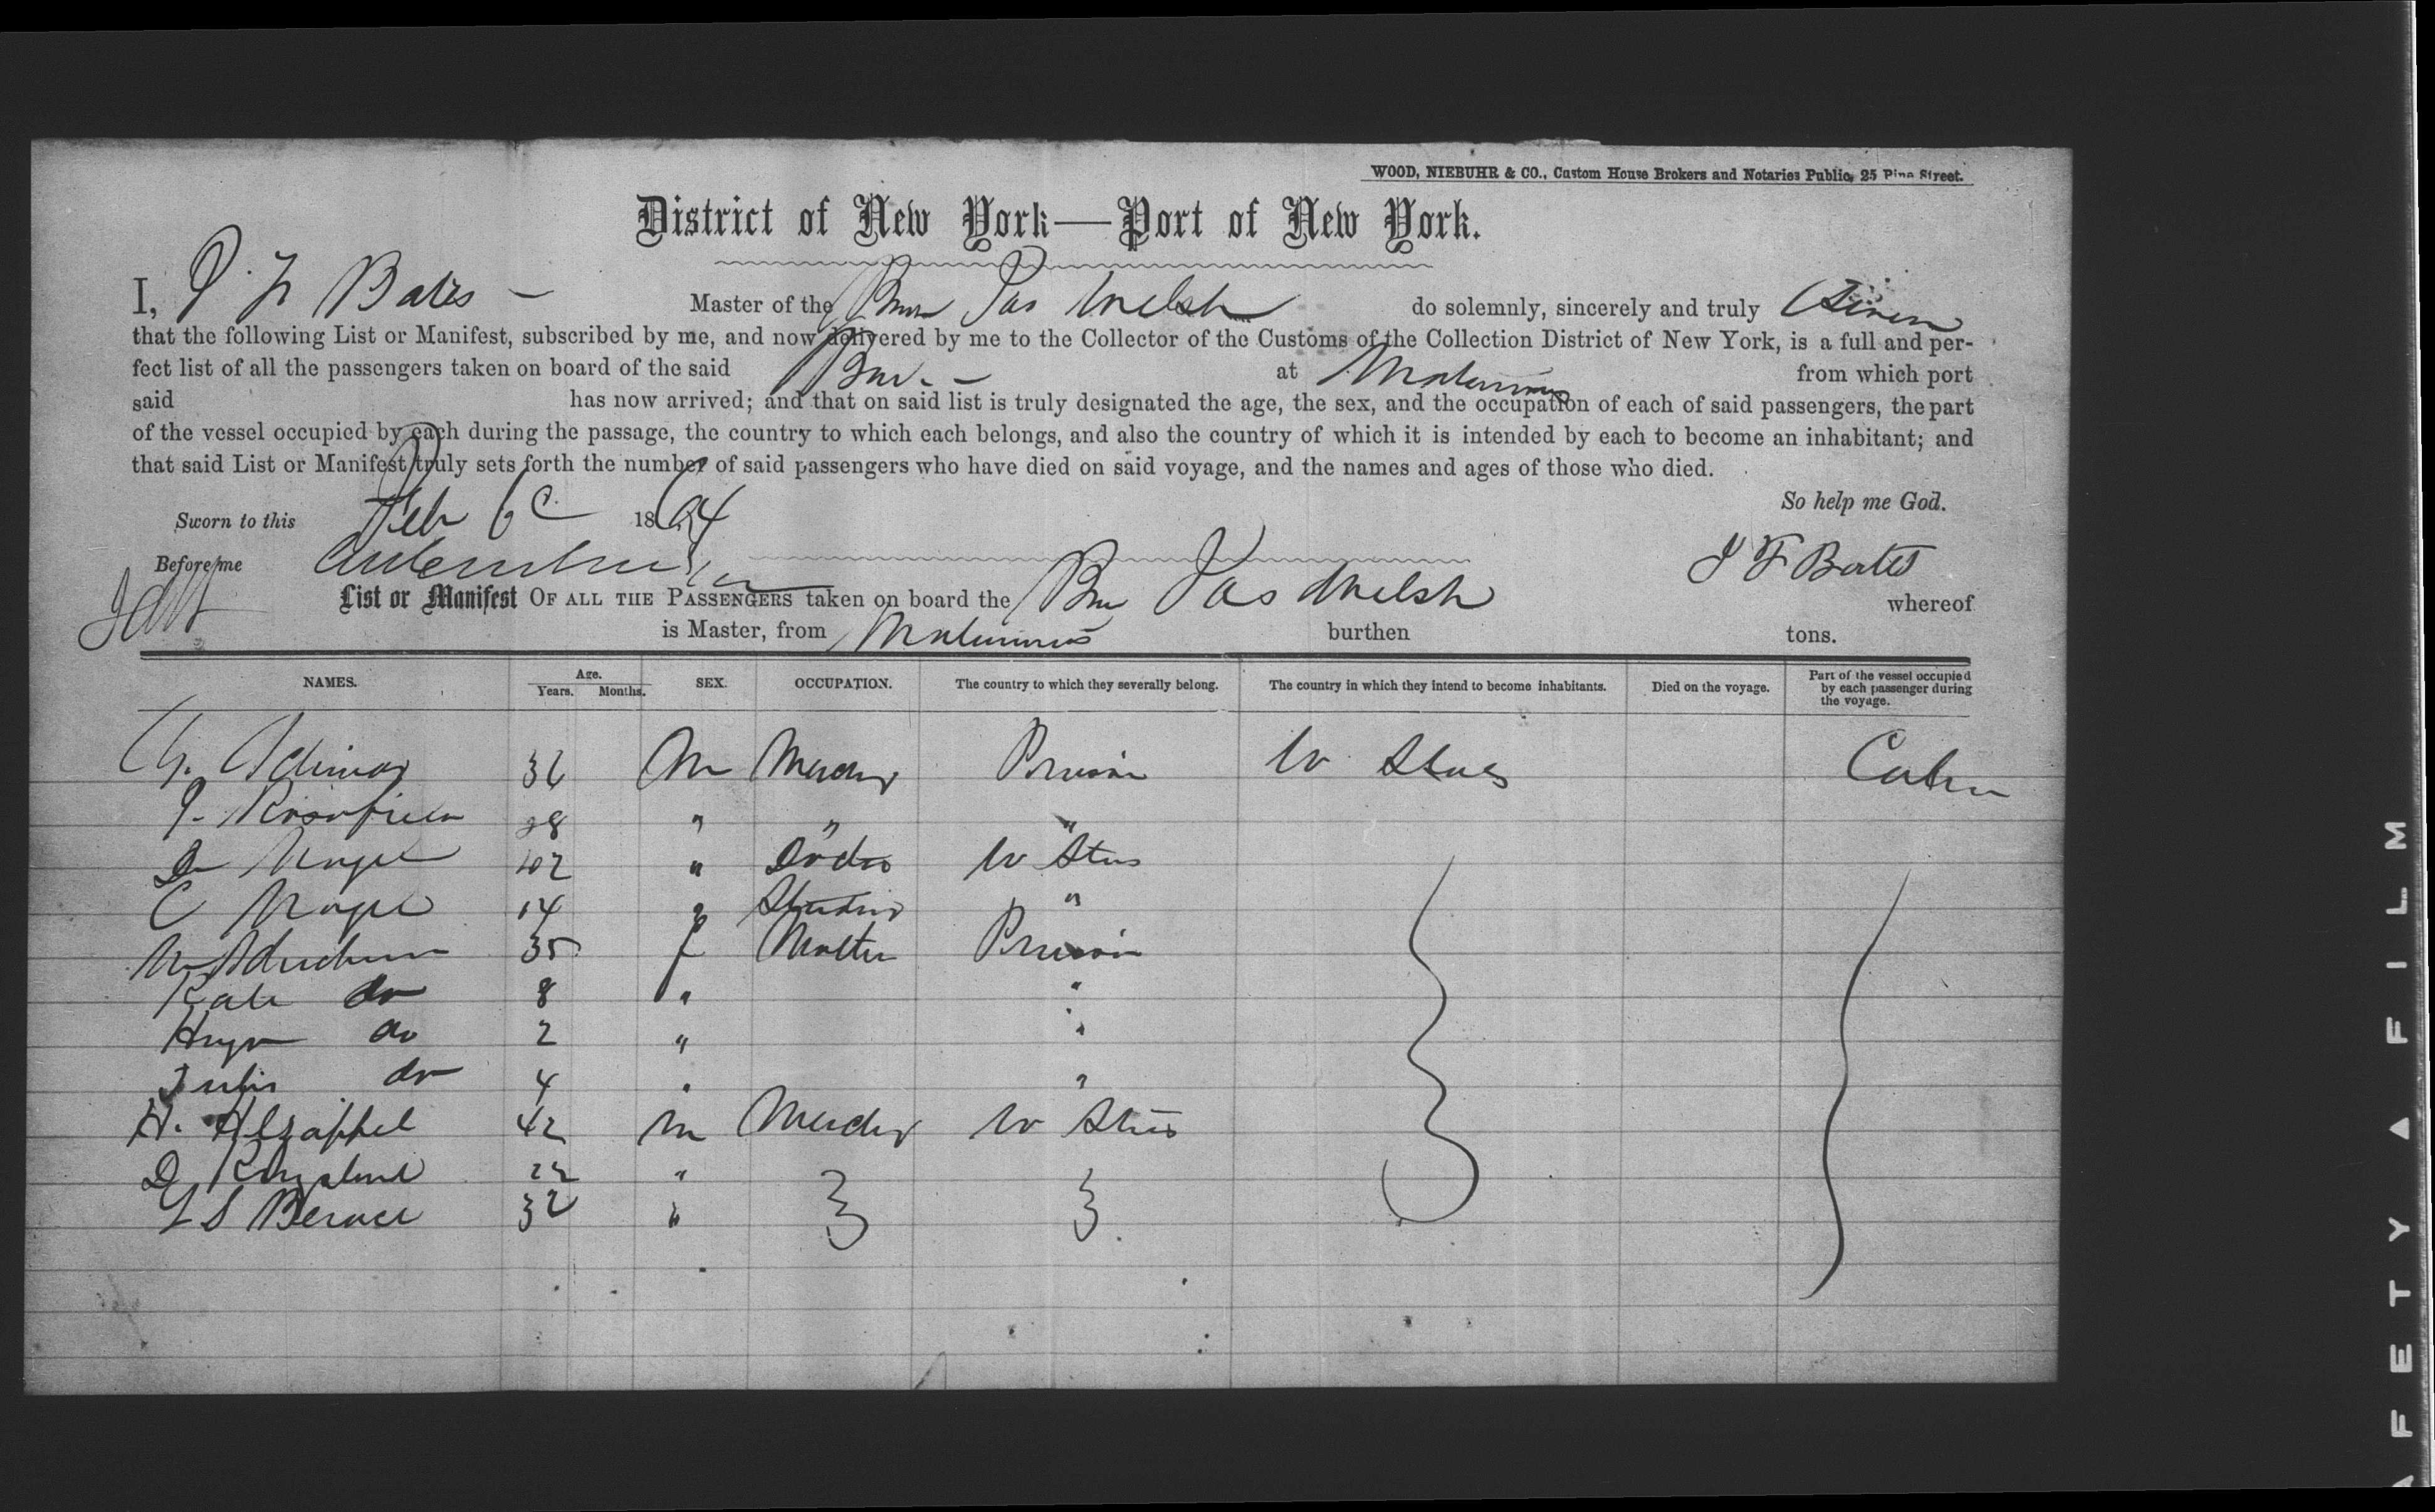 WOOD, NIEBUHR & CO., Custom House Brokers and Notaries Public, 25 Pine Street.
District of New York—Port of New York.
I, J. F. Bates — Master of the Jas Welsh do solemnly, sincerely and truly
that the following List or Manifest, subscribed by me, and now delivered by me to the Collector of the Customs of the Collection District of New York, is a full and per-
fect list of all the passengers taken on board of the said at Matamoros from which port
said has now arrived; and that on said list is truly designated the age, the sex, and the occupation of each of said passengers, the part
of the vessel occupied by each during the passage, the country to which each belongs, and also the country of which it is intended by each to become an inhabitant; and
that said List or Manifest truly sets forth the number of said passengers who have died on said voyage, and the names and ages of those who died.
So help me God.
Sworn to this Feb 6 1864
Before me J F Bates
List or Manifest OF ALL THE PASSENGERS taken on board the Jas Welsh whereof
is Master, from Matamoros burthen tons.
NAMES. Age. Years. Months. SEX. OCCUPATION. The country to which they severally belong. The country in which they intend to become inhabitants. Died on the voyage. Part of the vessel occupied by each passenger during the voyage.
36 M Prussia U States Cabin
28 " " "
Nagel 42 " Doctor U States
C Nagel 14 " Student "
35 f Mother Prussia
Kate do 8 " "
do 2 " "
do 4 " "
H. 42 M U States
D Kingsland 22 "
L S 32 "
SAFETY ▲ FILM